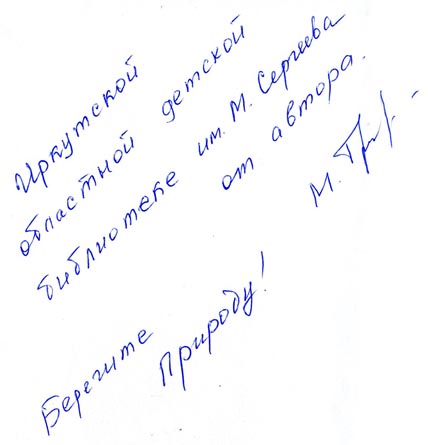 Иркутской
областной детской
библиотеке им. М. Сергеева
от автора.
Берегите
Природу!